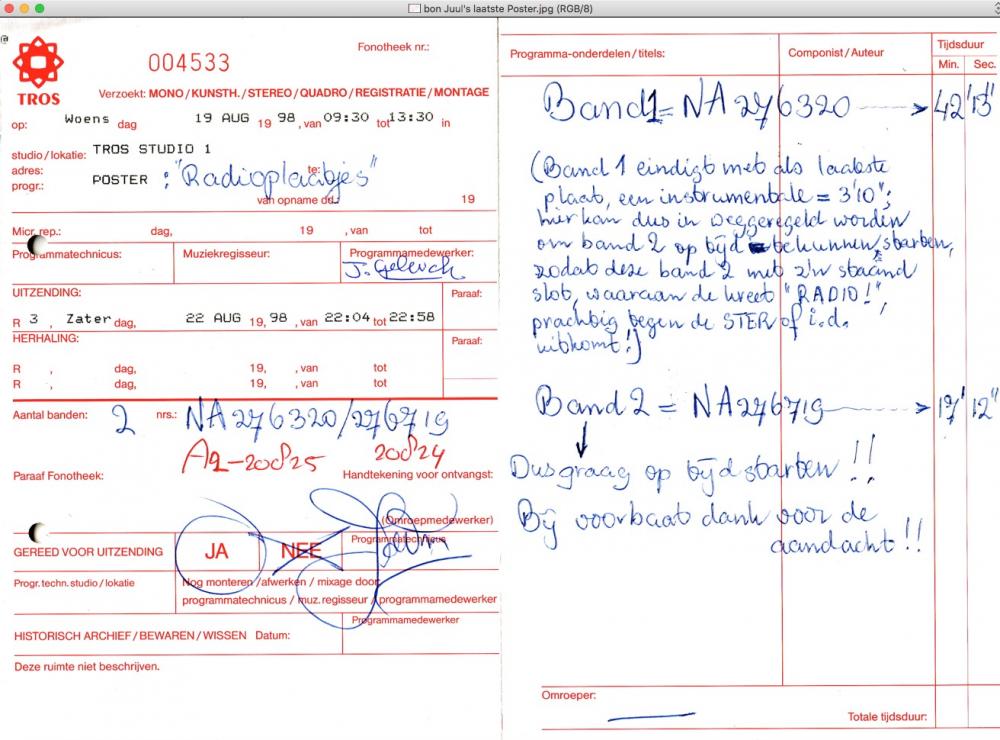 bon Juul's laatste Poster.jpg (RGB/8)
@
TROS
004533
Fonotheek nr.:
Verzoekt: MONO / KUNSTH. / STEREO / QUADRO / REGISTRATIE / MONTAGE
op: Woens dag 19 AUG 19 98 , van 09:30 tot 13:30 in
studio / lokatie: TROS STUDIO 1
adres: te:
progr.: POSTER : "Radioplaatjes"
van opname dd. 19
Micr. rep.: dag, 19 , van tot
Programmatechnicus: Muziekregisseur: Programmamedewerker:
J. Geleuch
UITZENDING: Paraaf:
R 3 , Zater dag, 22 AUG 19, 98 , van 22:04 tot 22:58
HERHALING: Paraaf:
R , dag, 19, , van tot
R , dag, 19, , van tot
Aantal banden: 2 nrs.: NA276320/276719
A2-200825 200824
Paraaf Fonotheek: Handtekening voor ontvangst:
(Omroepmedewerker)
GEREED VOOR UITZENDING JA NEE Programmatechnicus
Progr. techn. studio / lokatie Nog monteren / afwerken / mixage door
programmatechnicus / muz. regisseur / programmamedewerker
Programmamedewerker
HISTORISCH ARCHIEF / BEWAREN / WISSEN Datum:
Deze ruimte niet beschrijven.
Programma-onderdelen / titels: Componist / Auteur Tijdsduur
Min. Sec.
Band 1 = NA 276320 → 42' 15"
(Band 1 eindigt met als laatste
plaat, een instrumentale = 3'10";
hier kan dus in weggeregeld worden
om band 2 op tijd te kunnen starten,
zodat deze band 2 met z'n staand
slot, waaraan de kreet "RADIO!",
prachtig tegen de STER of i.d.
uitkomt!)
Band 2 = NA276719 → 17' 12"
↓
Dus graag op tijd starten !!
Bij voorbaat dank voor de
aandacht !!
Omroeper:
Totale tijdsduur: